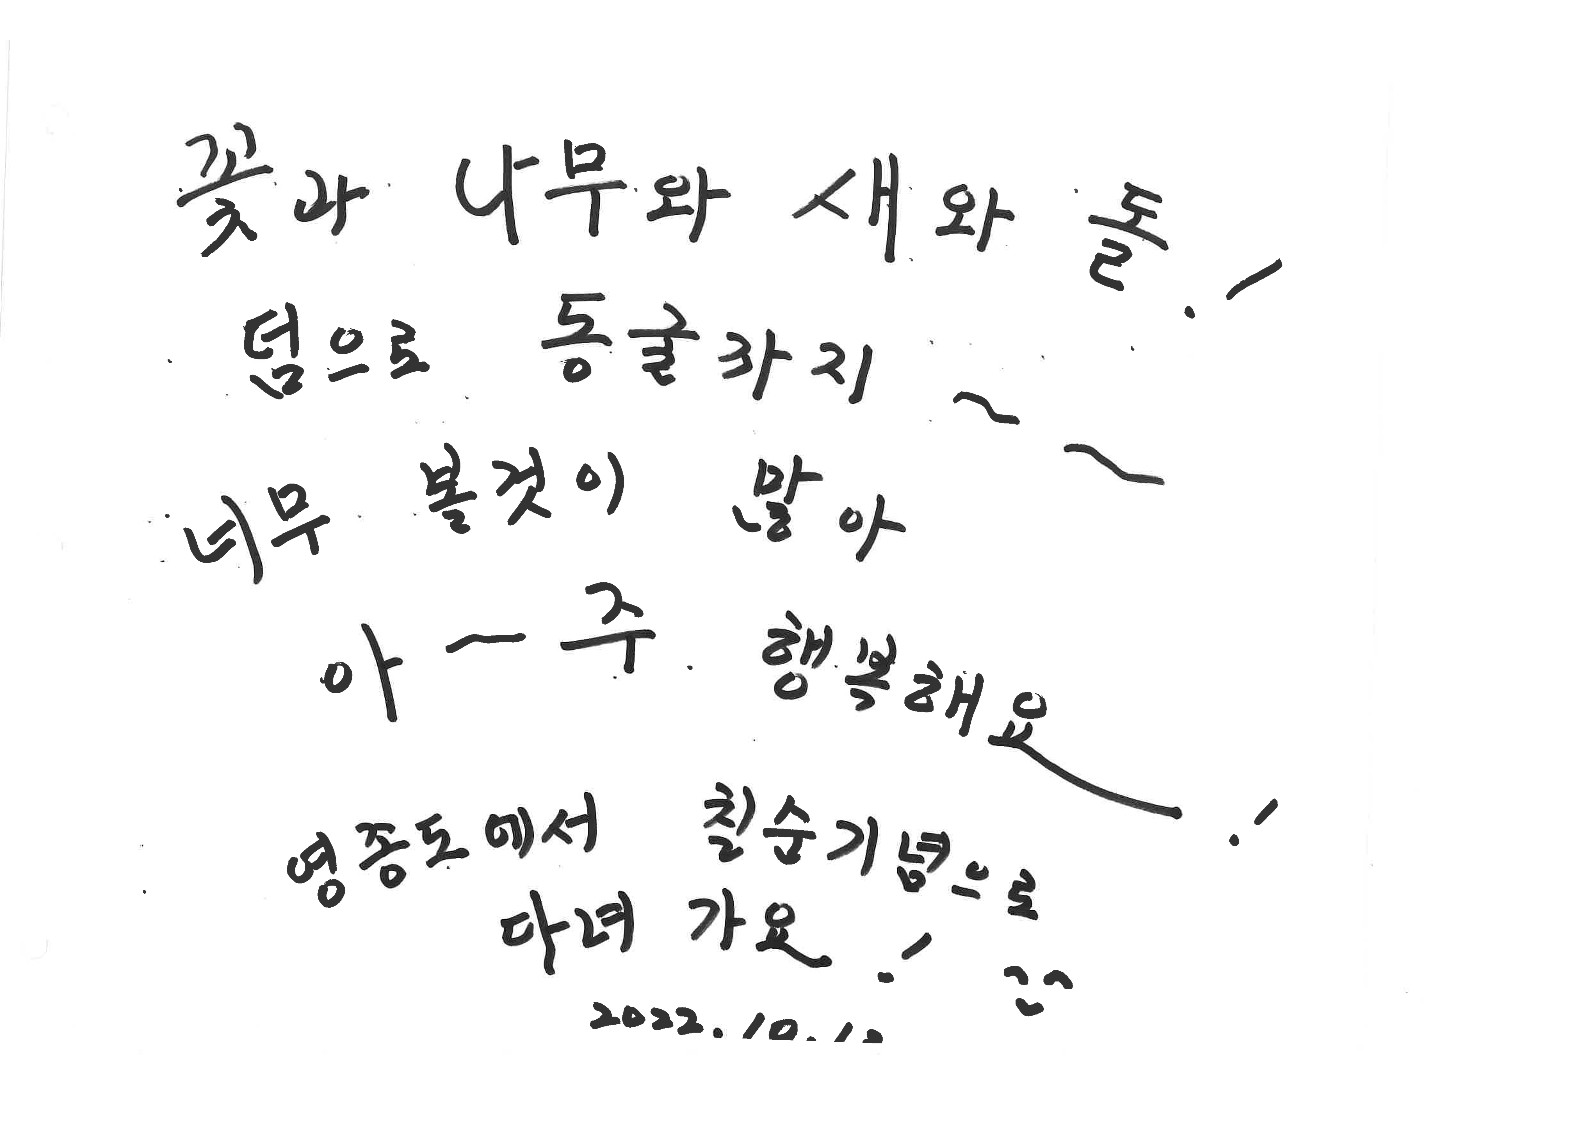 꽃과 나무와 새와 돌!
덤으로 동굴까지 ~ ~
너무 볼것이 많아
아~주 행복해요!
영종도에서 칠순기념으로
다녀 가요! ^^
2022.10.